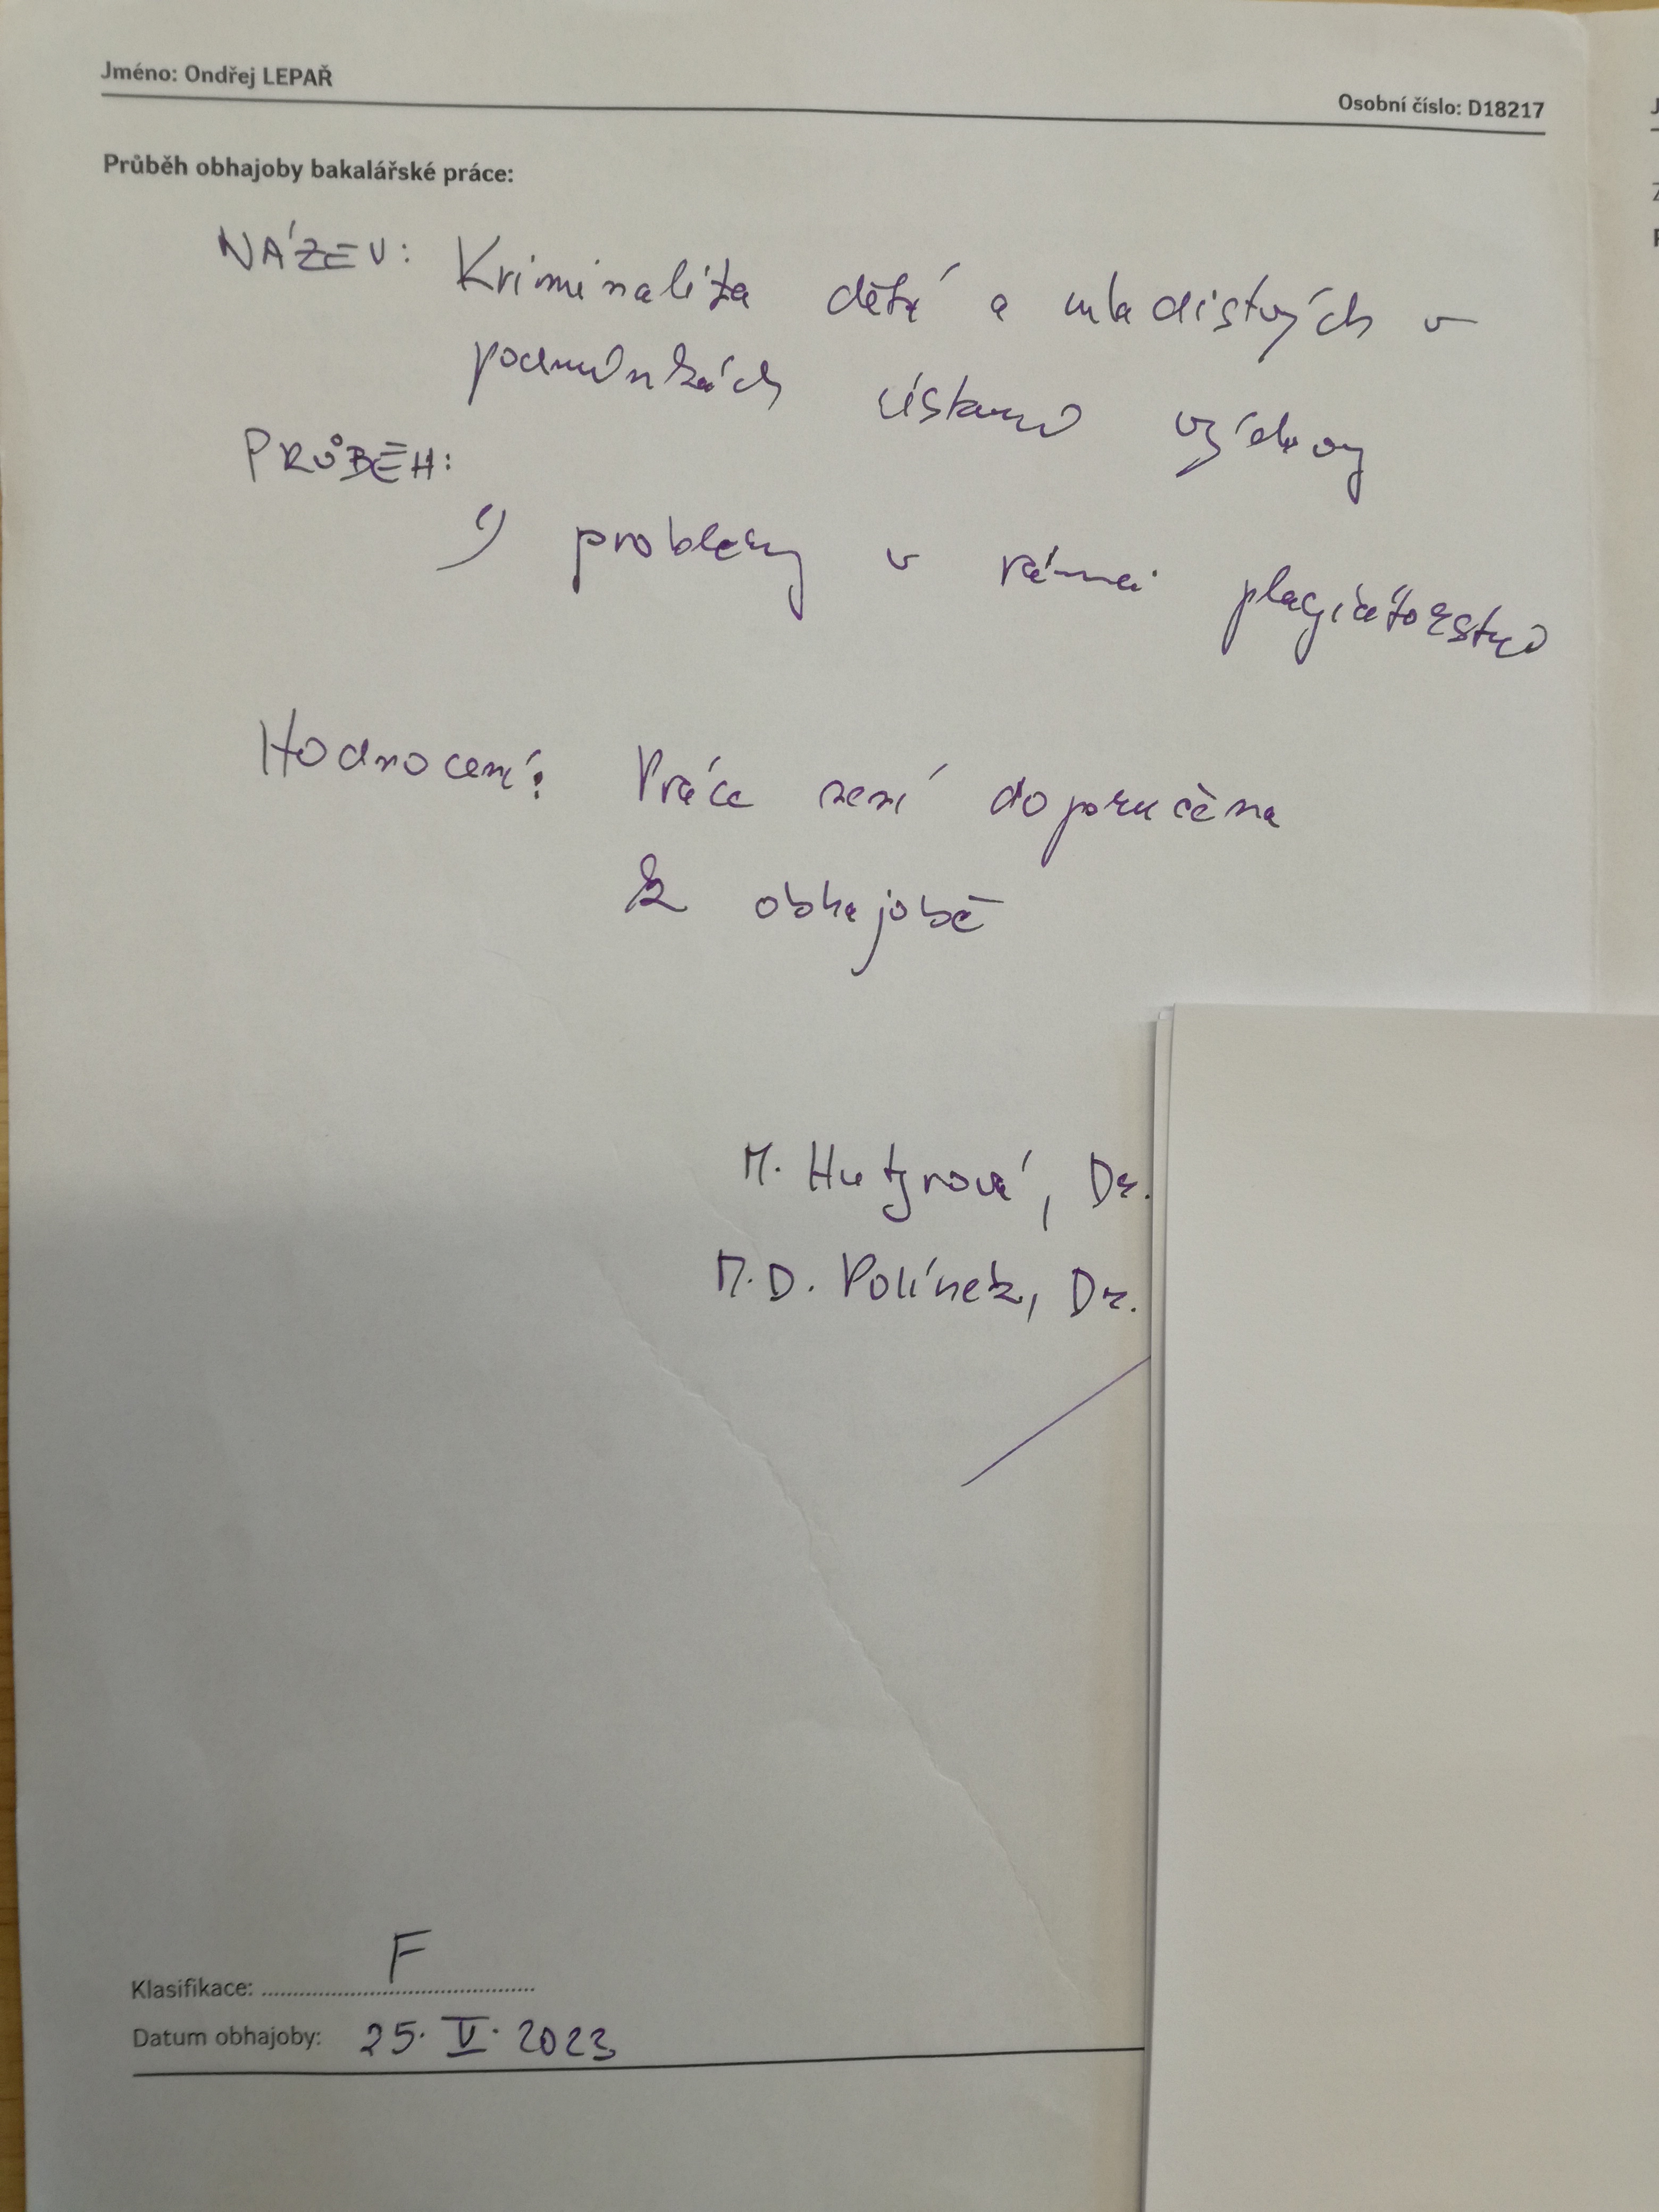 Jméno: Ondřej LEPAŘ
Osobní číslo: D18217
Průběh obhajoby bakalářské práce:
NÁZEV: Kriminalita dětí a mladistvých v
podmínkách ústavní výchovy
PRŮBĚH:
1) problémy v rámci plagiátorství
Hodnocení: Práce není doporučena
k obhajobě
M. Hutyrová, Dr.
M.D. Polínek, Dr.
Klasifikace: F
Datum obhajoby: 25. V. 2023